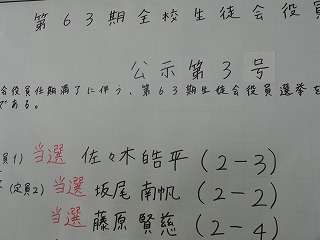 第63期全校生徒会役員
公示第3号
会役員任期満了に伴う、第63期生徒会役員選挙を
である。
員1) 当選 佐々木皓平(2-3)
(定員2) 当選 坂尾南帆(2-2)
当選 藤原賢慈(2-4)